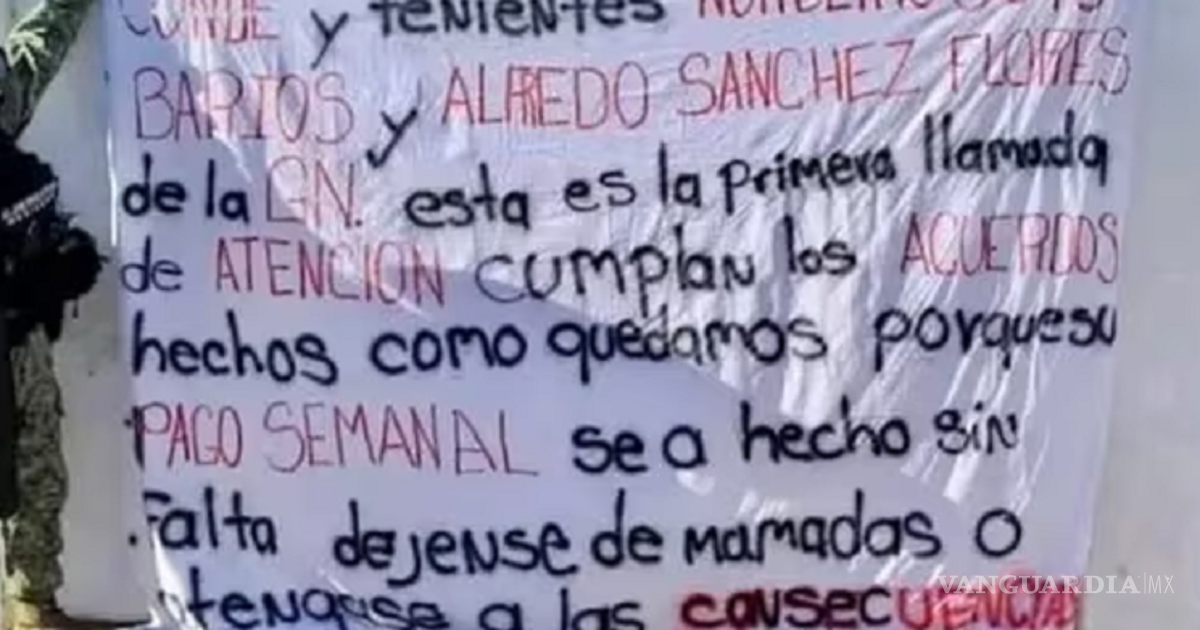 CONDE y tenientes
BARIOS y ALFREDO SANCHEZ FLORES
de la GN. esta es la primera llamada
de ATENCION cumplan los ACUERDOS
hechos como quedamos porquesu
PAGO SEMANAL se a hecho sin
falta dejense de mamadas o
atenganse a las consecuencia
VANGUARDIA|MX